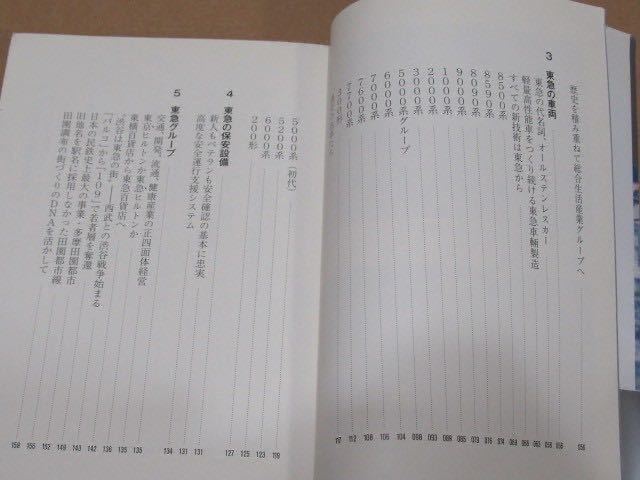 歴史を積み重ねて総合生活産業グループへ 056
3 東急の車両
東急の代名詞、オールステンレスカー
軽量高性能車をつくり続ける東急車輛製造
すべての新技術は東急から
8500系
8590系
8090系
9000系
1000系
2000系
3000系
5000系グループ
6000系
7000系
7600系
7700系
300系
5000系（初代） 119
5200系 123
6000系 125
200形 127
4 東急の保安設備
新人もベテランも安全確認の基本に忠実 131
高度な安全運行支援システム 131
5 東急グループ
交通、開発、流通、健康産業の正四面体経営
東京ヒルトンか東急ヒルトンか
東横百貨店から東急百貨店へ
「渋谷は東急の街」――西武との渋谷戦争始まる
「パルコ」から「109」で若者層を奪還
日本の民鉄史上最大の事業・多摩田園都市
旧地名を駅名に採用しなかった田園都市線
田園調布の街づくりのDNAを活かして 158